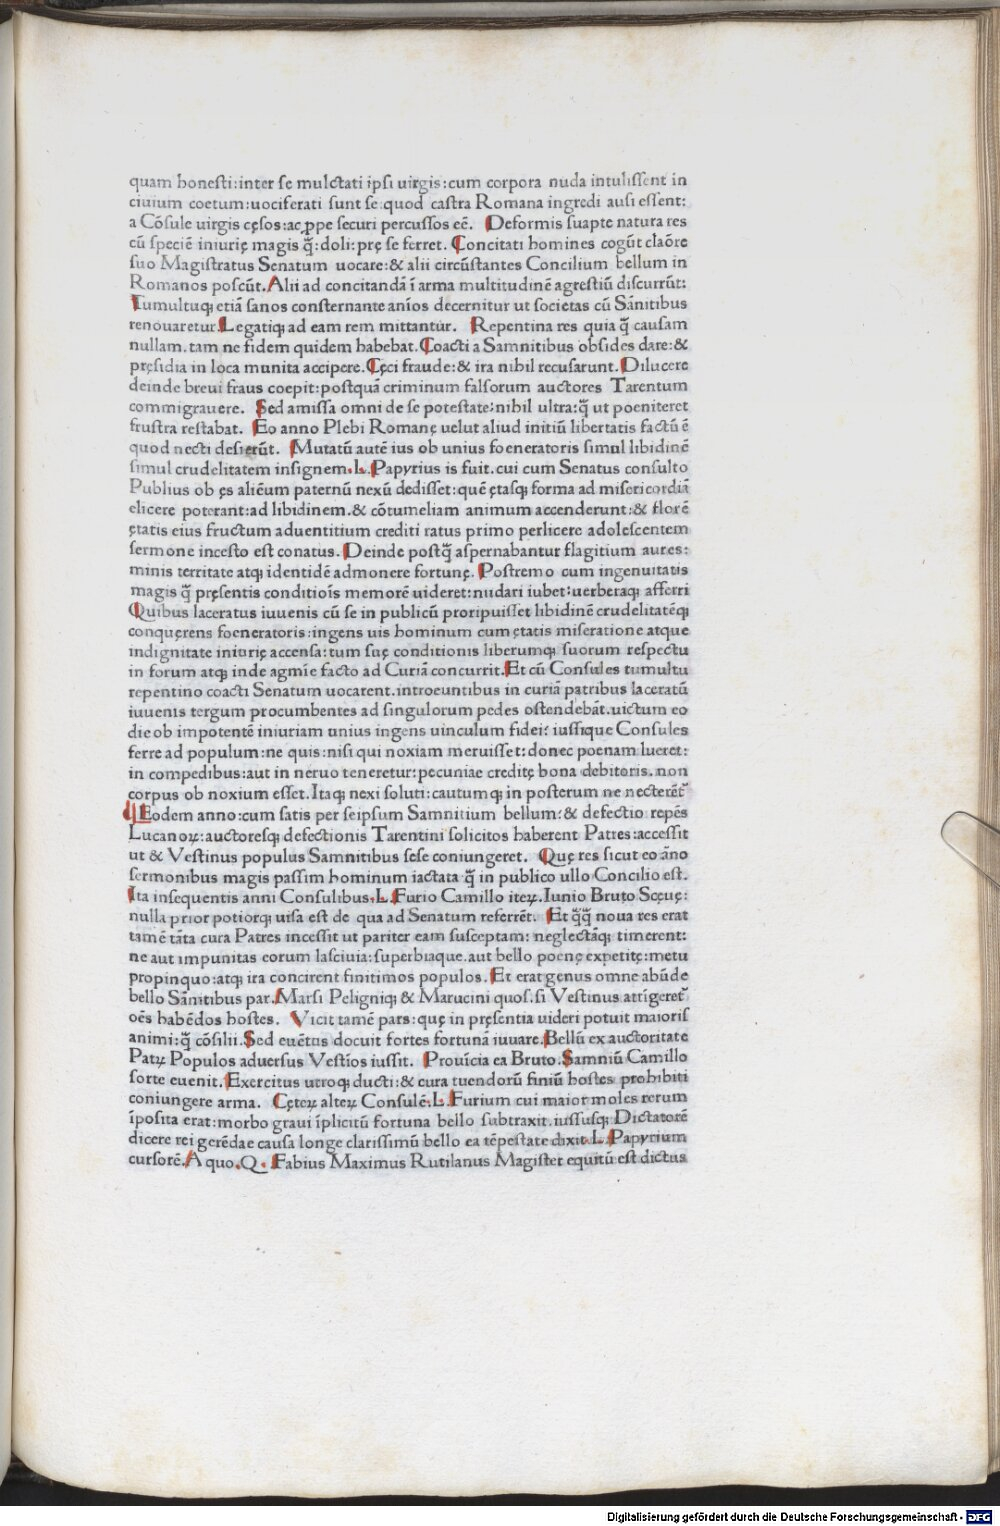 quam honesti:inter se mulctati ipsi uirgis:cum corpora nuda intulissent in
ciuium coetum:uociferati sunt se quod castra Romana ingredi ausi essent:
a Cōsule uirgis cęsos:ac ꝓpe securi percussos eē. Deformis suapte natura res
cū speciē iniurię magis q̄̃:doli:prę se ferret. Concitati homines cogūt claōre
suo Magistratus Senatum uocare:& alii circūstantes Concilium bellum in
Romanos poscūt.Alii ad concitandā ī arma multitudinē agrestiū discurrūt:
Tumultuqꝫ etiā sanos consternante aniōs decernitur ut societas cū Sānitibus
renouaretur.Legatiqꝫ ad eam rem mittantur. Repentina res quia q̄̃ causam
nullam.tam ne fidem quidem habebat.Coacti a Samnitibus obsides dare:&
pręsidia in loca munita accipere.Cęci fraude:& ira nihil recusarunt.Dilucere
deinde breui fraus coepit:postquā criminum falsorum auctores Tarentum
commigrauere. Sed amissa omni de se potestate:nihil ultra:q̄̃ ut poeniteret
frustra restabat. Eo anno Plebi Romanę uelut aliud initiū libertatis factū ē
quod necti desierūt. Mutatū autē ius ob unius foeneratoris simul libidinē
simul crudelitatem insignem.L.Papyrius is fuit.cui cum Senatus consulto
Publius ob ęs aliēum paternū nexū dedisset:quē ętasqꝫ forma ad misericordiā
elicere poterant:ad libidinem.& cōtumeliam animum accenderunt:& florē
ętatis eius fructum aduentitium crediti ratus primo perlicere adolescentem
sermone incesto est conatus.Deinde postq̄̃ aspernabantur flagitium aures:
minis territate atqꝫ identidē admonere fortunę. Postremo cum ingenuitatis
magis q̄̃ pręsentis conditiōis memorē uideret:nudari iubet:uerberaqꝫ afferri
Quibus laceratus iuuenis cū se in publicū proripuisset libidinē crudelitatēqꝫ
conquęrens foeneratoris:ingens uis hominum cum ętatis miseratione atque
indignitate iniurię accensa:tum suę conditionis liberumqꝫ suorum respectu
in forum atqꝫ inde agmīe facto ad Curiā concurrit.Et cū Consules tumultu
repentino coacti Senatum uocarent.introeuntibus in curiā patribus laceratū
iuuenis tergum procumbentes ad singulorum pedes ostendebāt.uictum eo
die ob impotentē iniuriam unius ingens uinculum fidei: iussique Consules
ferre ad populum:ne quis:nisi qui noxiam meruisset:donec poenam lueret:
in compedibus:aut in neruo teneretur:pecuniae creditę bona debitoris.non
corpus ob noxium esset.Itaqꝫ nexi soluti:cautumqꝫ in posterum ne necterēt᷑
Eodem anno:cum satis per seipsum Samnitium bellum:& defectio repēs
Lucanoꝝ:auctoresqꝫ defectionis Tarentini solicitos haberent Patres:accessit
ut & Vestinus populus Samnitibus sese coniungeret. Quę res sicut eo āno
sermonibus magis passim hominum iactata q̄̃ in publico ullo Concilio est.
Ita insequentis anni Consulibus.L.Furio Camillo iteꝝ.Iunio Bruto Scęuę:
nulla prior potiorqꝫ uisa est de qua ad Senatum referrēt. Et q̄̃q̄̃ noua res erat
tamē tāta cura Patres incessit ut pariter eam susceptam: neglectāqꝫ timerent:
ne aut impunitas eorum lasciuia:superbiaque.aut bello poenę expetitę:metu
propinquo:atqꝫ ira concirent finitimos populos.Et erat genus omne abūde
bello Sānitibus par.Marsi Peligniqꝫ & Marucini quos.si Vestinus attīgeret᷑
oēs habēdos hostes. Vicit tamē pars:quę in pręsentia uideri potuit maioris
animi:q̄̃ cōsilii.Sed euētus docuit fortes fortunā iuuare.Bellū ex auctoritate
Patꝝ Populos aduersus Vestīos iussit. Prouīcia ea Bruto.Samniū Camillo
sorte euenit.Exercitus utroqꝫ ducti:& cura tuendorū finiū hostes prohibiti
coniungere arma. Cęteꝝ alteꝝ Consulē.L.Furium cui maior moles rerum
īposita erat:morbo graui īplicitū fortuna bello subtraxit.iussusqꝫ Dictatorē
dicere rei gerēdae causa longe clarissimū bello ea tēpestate dixit.L.Papyrium
cursorē.A quo.Q. Fabius Maximus Rutilanus Magister equitū est dictus
Digitalisierung gefördert durch die Deutsche Forschungsgemeinschaft - DFG